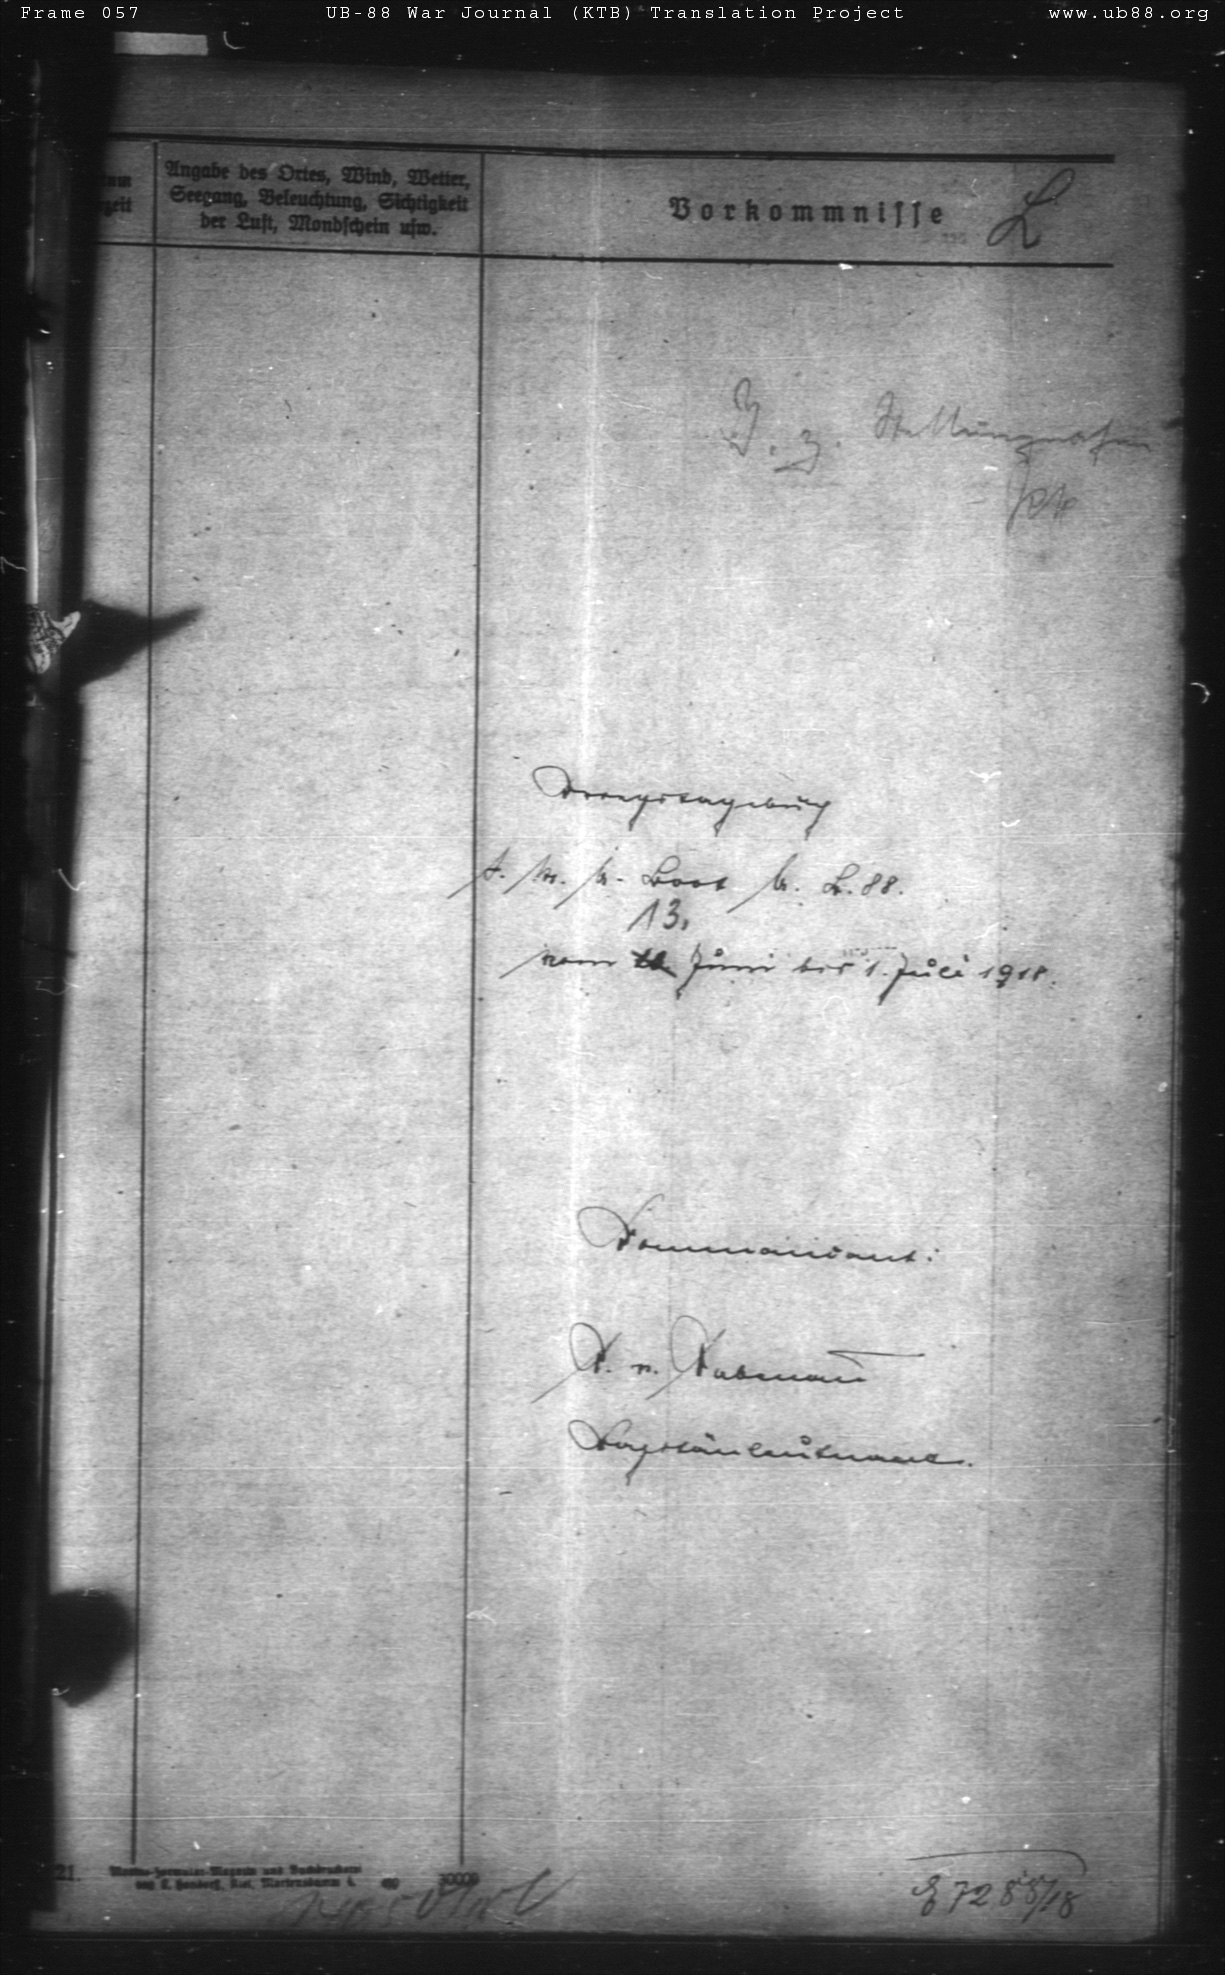 Frame 057 UB-88 War Journal (KTB) Translation Project www.ub88.org
Angabe des Ortes, Wind, Wetter,
Seegang, Beleuchtung, Sichtigkeit
der Luft, Mondschein usw.
Vorkommnisse
Z. z. Stellungnahme
Kriegstagebuch
S. M. U. Boot U. B. 88.
13.
vom Juni bis 1. Juli 1918.
Kommandant:
R. v. Rabenau
Kapitänleutnant.
21. Marine-Formular-Magazin und Buchdruckerei
Kiel, 30000